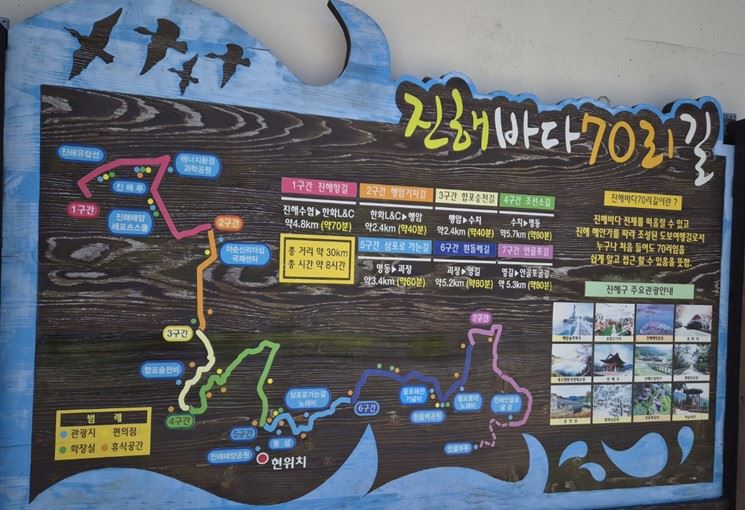 진해바다70리길
1구간 진해항길
진해수협▶한화L&C
약4.8km (약70분)
2구간 행암기차길
한화L&C▶행암
약2.4km (약40분)
3구간 합포승전길
행암▶수치
약2.4km (약40분)
4구간 조선소길
수치▶명동
약5.7km (약80분)
총 거리 약 30km
총 시간 약 8시간
5구간 삼포로 가는길
명동▶괴정
약3.4km (약60분)
6구간 흰돌메길
괴정▶영길
약5.2km (약80분)
7구간 안골포길
영길▶안골포굴강
약 5.3km (약80분)
진해바다70리길이란 ?
진해바다 전체를 떠올릴 수 있고
진해 해안가를 따라 조성된 도보여행길로서
누구나 처음 들어도 70리임을
쉽게 알고 접근 할 수 있음을 뜻함.
진해구 주요관광안내
진해유람선
에너지환경
과학공원
진해루
진해해양
레포츠스쿨
1구간
2구간
이순신리더십
국제센터
3구간
합포승전비
4구간
5구간
동섬
진해해양공원
현위치
삼포로가는길
노래비
6구간
흰돌메공원
7구간
범 례
관광지
편의점
화장실
휴식공간